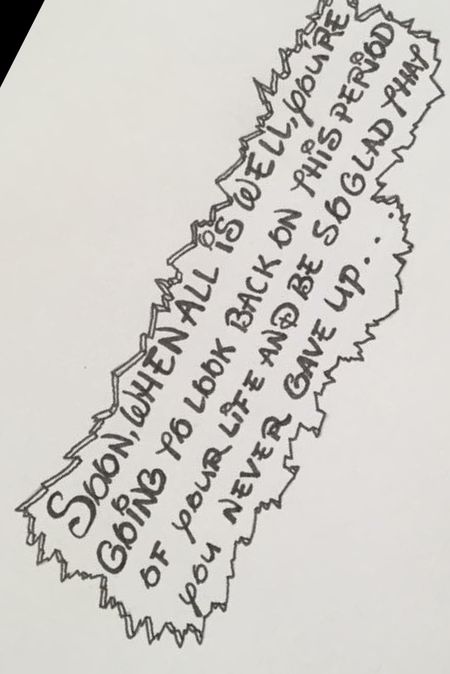 SOON, WHEN ALL IS WELL, YOU'RE
GOING TO LOOK BACK ON THIS PERIOD
OF YOUR LIFE AND BE SO GLAD THAT
YOU NEVER GAVE UP...